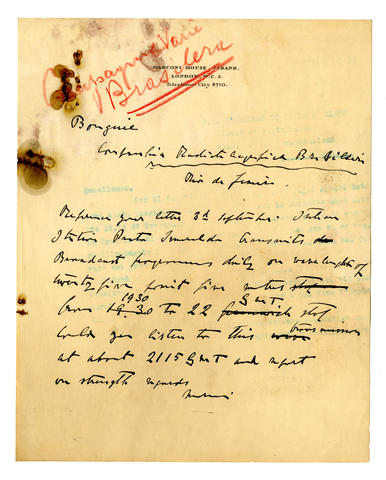 Compagnie Radio
Brasilera
MARCONI HOUSE, STRAND,
LONDON, W.C. 2.
Telephone: City 8710.
Bouguié
Companhia Radiotelegraphica Brasileira
Rio de Janeiro.
Reference your letter 3rd september. Italian
Station Punta Smeralda transmits
Broadcast programmes daily on wavelength of
twenty five point five metres stop
1930 GMT
from 19 30 to 22 Greenwich stop
transmission
Could you listen to this
at about 2115 GMT and report
on strength regards